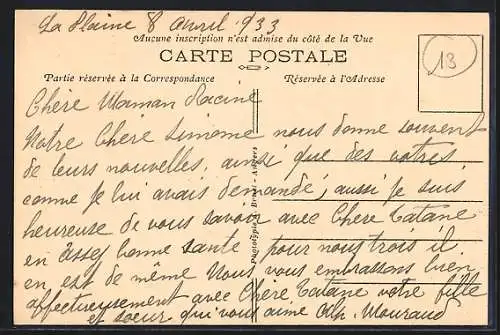 La Plaine 8 Avril 1933
Aucune inscription n'est admise du côté de la Vue
CARTE POSTALE
Partie réservée à la Correspondance
Réservée à l'Adresse
13
Chère Maman Racine
Notre Chère Simone nous donne souvent
de leurs nouvelles, ainsi que des votres
comme je lui avais demandé, aussi je suis
heureuse de vous savoir avec Chère Tatane
en assez bonne santé pour nous trois il
en est de même Nous vous embrassons bien
affectueusement avec Chère Tatane votre fille
et soeur qui vous aime Mouraud
Phototypie Bruel - Angers